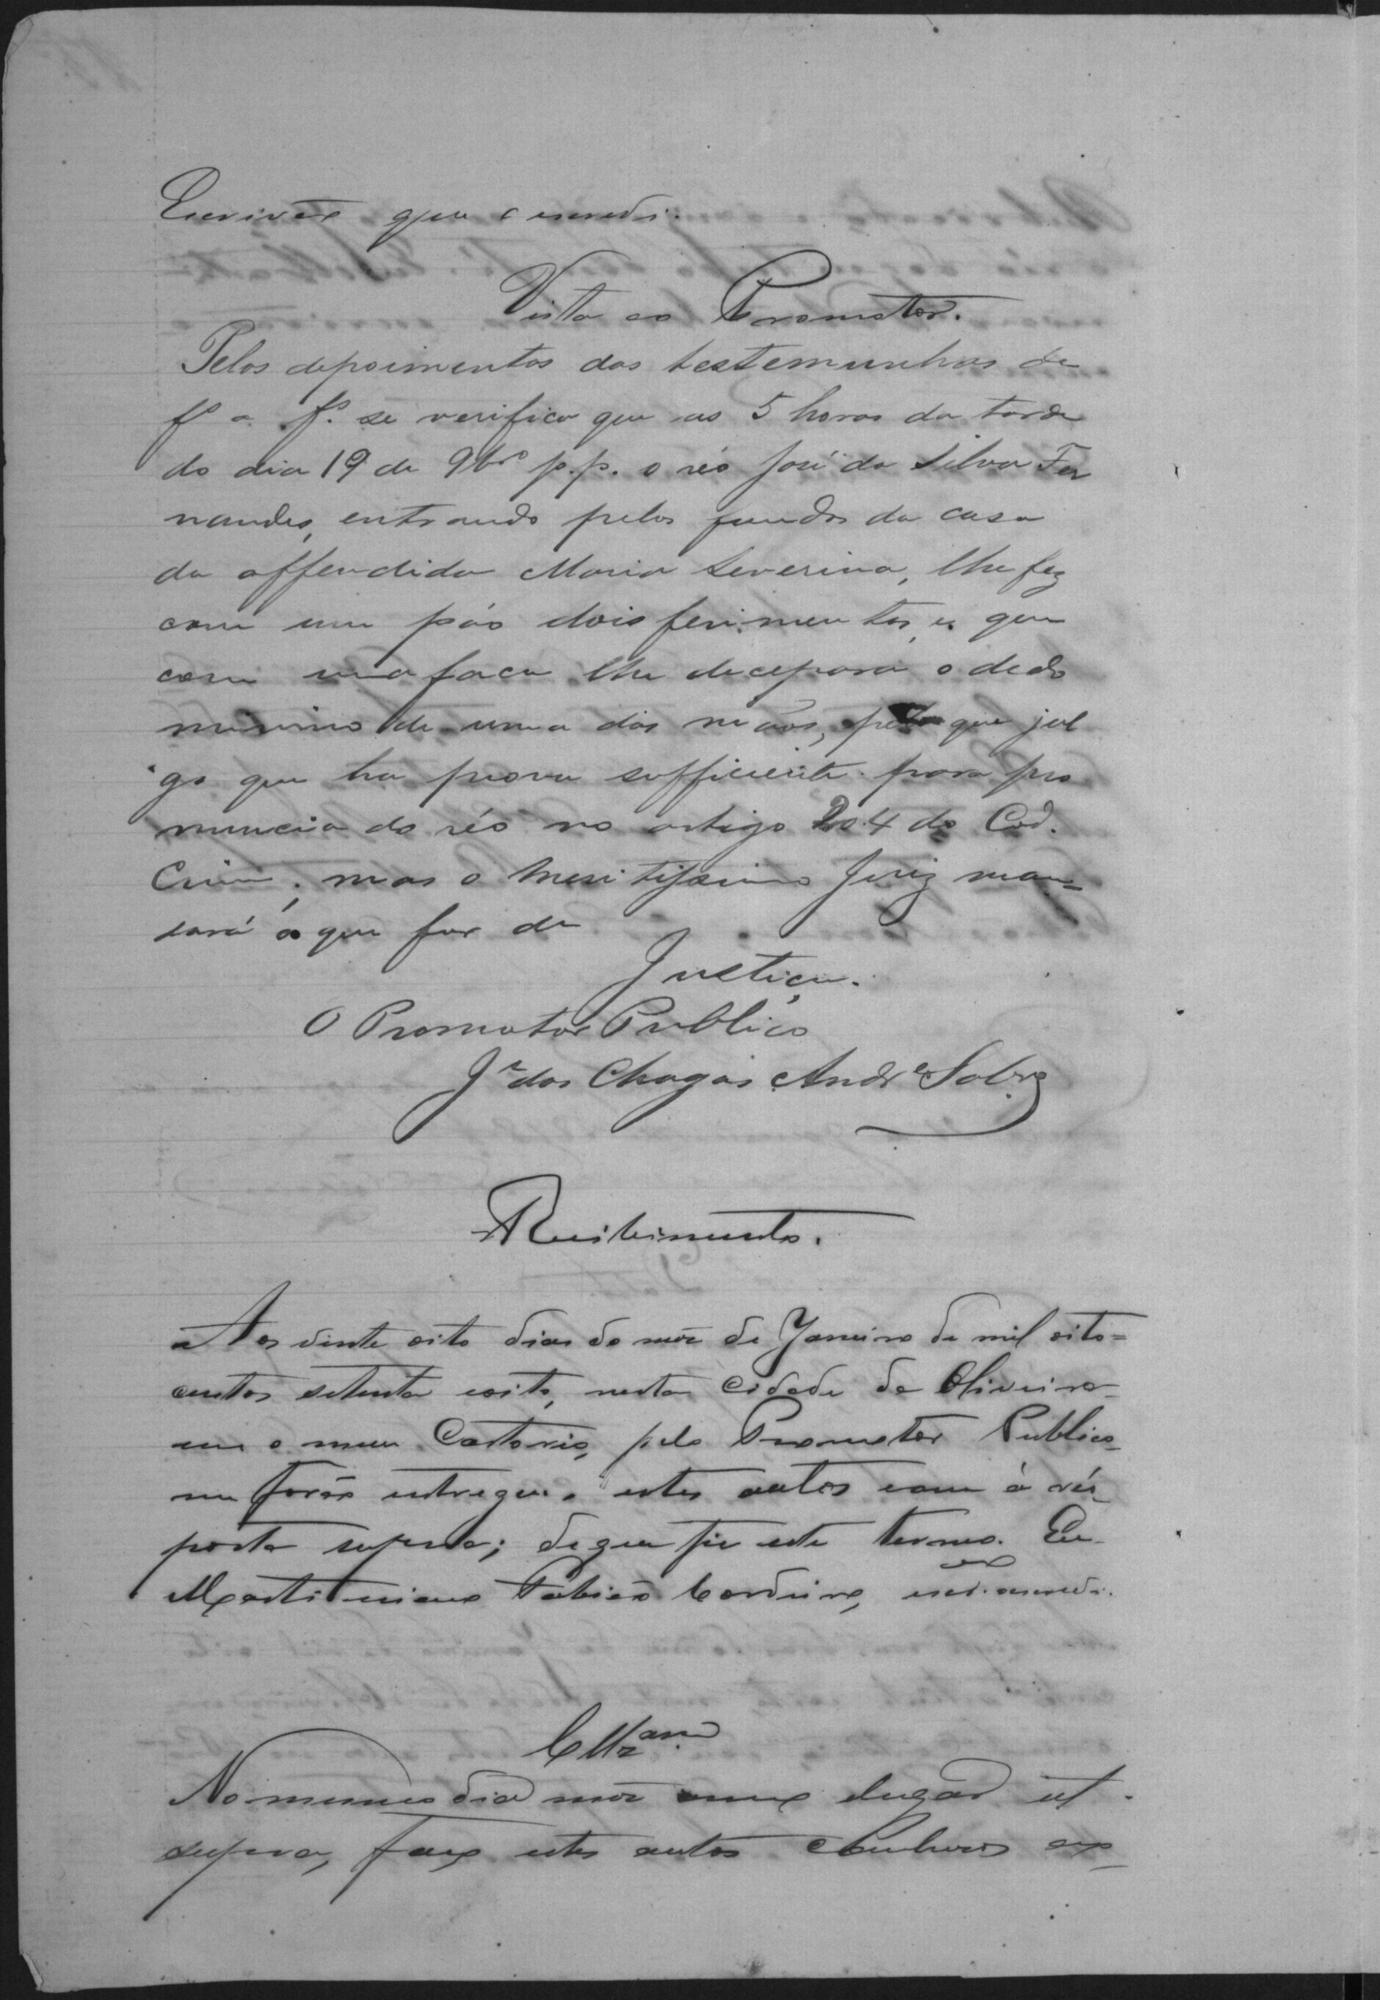 Escrivão que escrevi.
Vista ao Promotor.
Pelos depoimentos das testemunhas de
fs a fs. se verifica que as 5 horas da tarde
do dia 19 de 9bro p.p. o réo José da Silva Fer
nandes, entrando pelos fundos da casa
da offendida Maria Severina, lhe fez
com um páo dois ferimentos, e que
com uma faca lhe decepara o dedo
minimo de uma das mãos, pelo que jul
go que ha prova sufficiente para pro
nuncia do réo no artigo 204 do Cod.
Crim.; mas o Meritissimo Juiz man=
dará o que for de
Justiça.
O Promotor Publico
Je das Chagas Andre Sobro
Recibimento.
Aos vinte oito dias do mez de Janeiro de mil oito=
centos setenta e oito, nesta Cidade da Oliveira
em o meu Cartorio, pelo Promotor Publico
me forão entregue estes autos com a rés
posta supra; de que fiz este termo. Eu
Martiniano Fabião Cordeiro, escram escrevi.
Cllzam
No mesmo dia mez anno e lugar ut
supra, faço estes autos concluzos ao